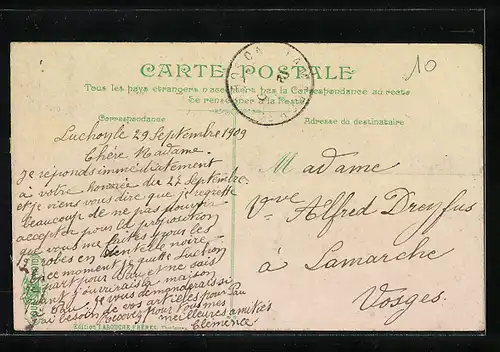 10
CARTE POSTALE
Tous les pays étrangers n'acceptent pas la Correspondance au recto
Se renseigner à la Poste
Correspondance
Adresse du destinataire
Luchoyle 29 Septembre 1909
Chère Madame.
Je réponds immédiatement
à votre honorée du 27 Septembre
et je viens vous dire que je regrette
beaucoup de ne pas pouvoir
accepter pour la proposition
que vous me faites pour les
robes en dentelle noire
ce moment je quitte Luchon
pour Pau et ne sais
quand j'ouvrirais la maison
Pau. Je vous demanderais si
j'ai besoin de vos articles pour Pau
Recevez pour vous mes
meilleures amitiés
Clémence
Madame
Vve Alfred Dreyfus
à Lamarche
Vosges.
Edition LABOUCHE FRÈRES, Toulouse